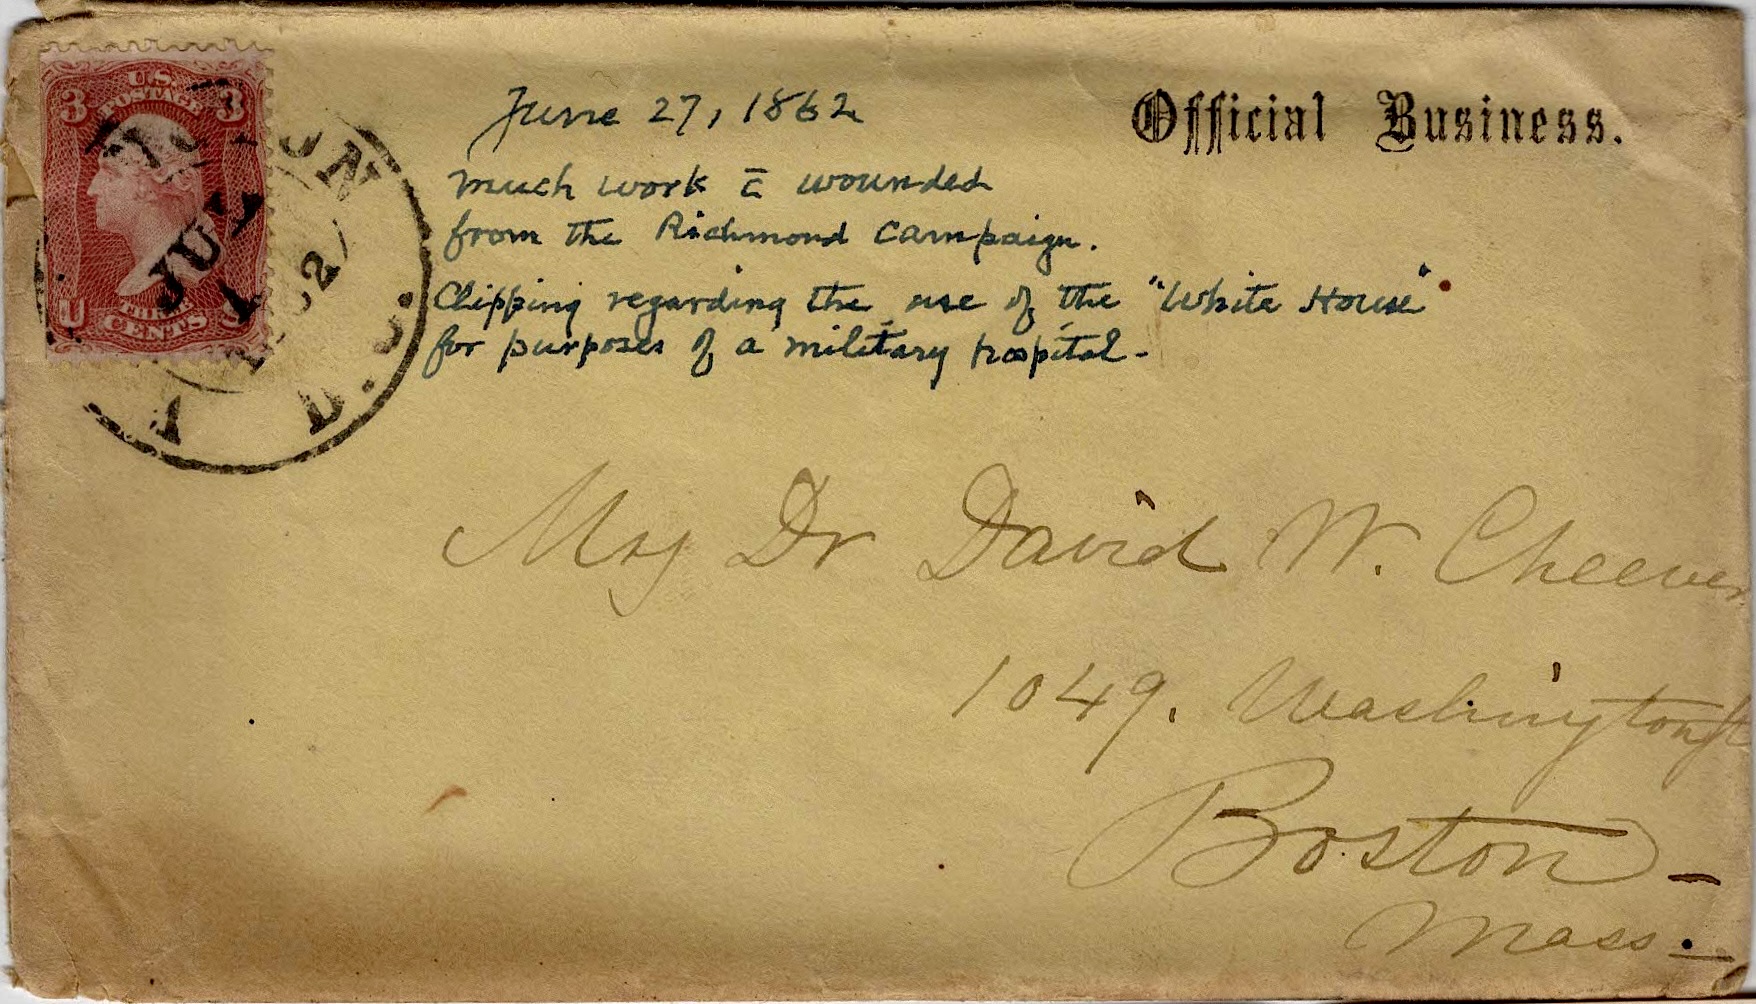 U.S.
POSTAGE
3 3
U S
THREE
CENTS
JUL
1
1862
D.C.
Official Business.
June 27, 1862
much work c̄ wounded
from the Richmond Campaign.
Clipping regarding the use of the "White House"
for purposes of a military hospital-
Dr David W. Cheever
1049. Washington St
Boston-
Mass.